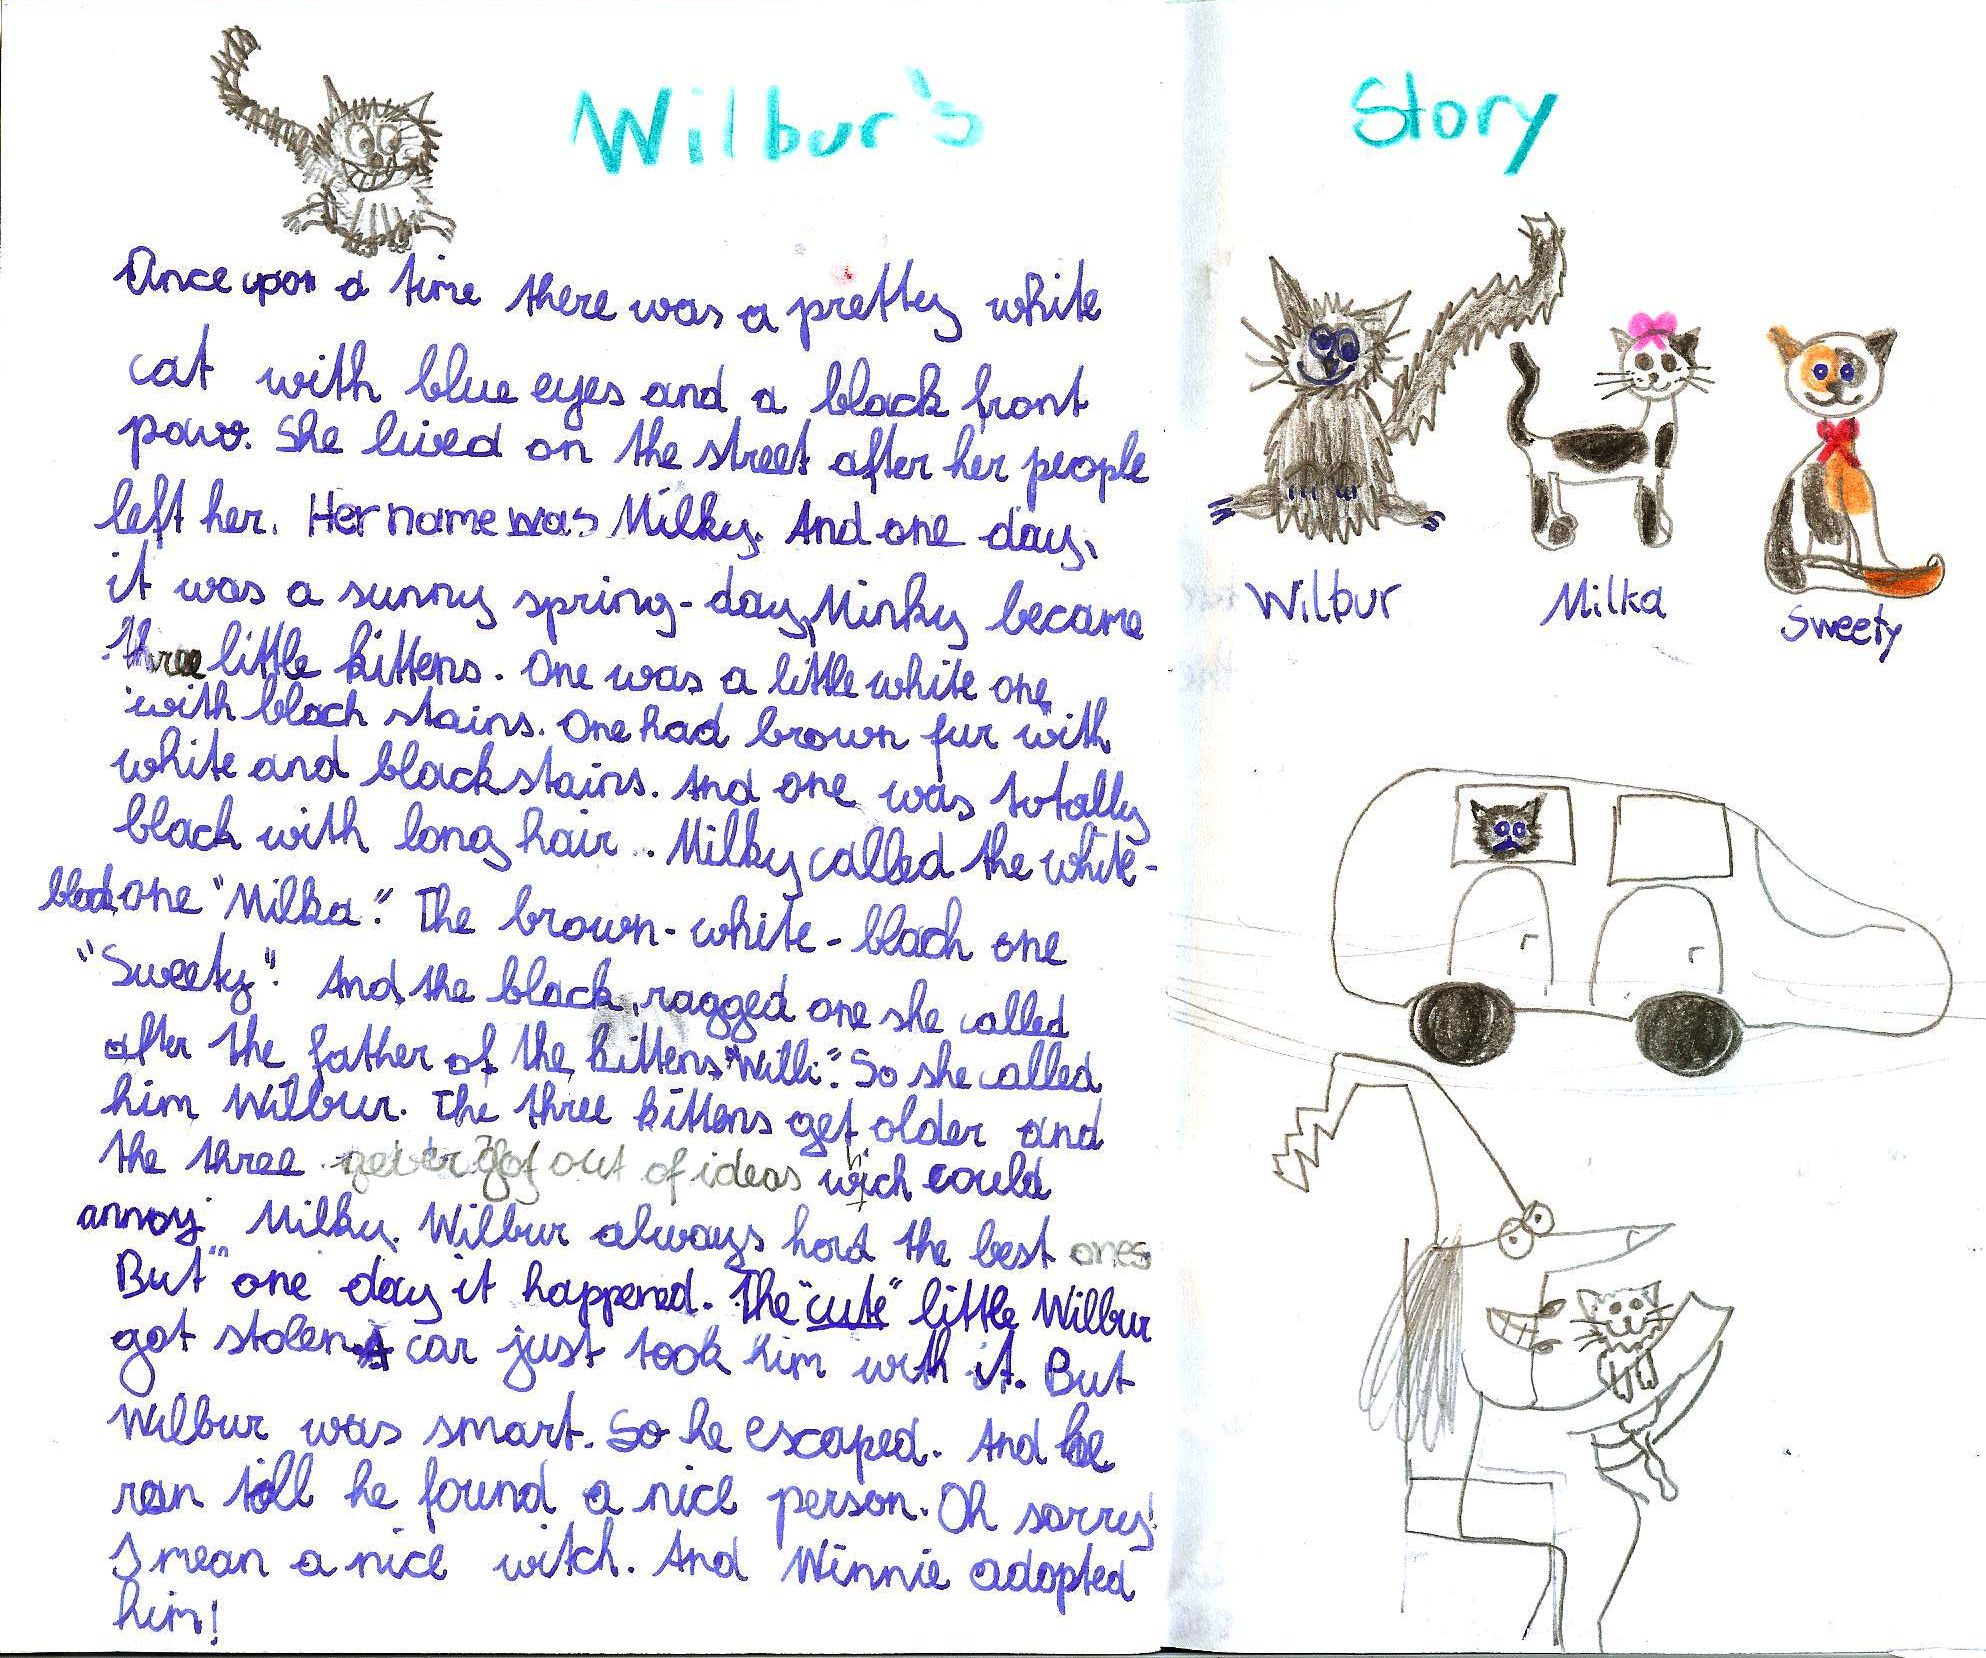 Wilbur's Story
Once upon a time there was a pretty white
cat with blue eyes and a black front
paw. She lived on the street after her people
left her. Her name was Milky. And one day,
it was a sunny spring-day, Minky became
three little kittens. One was a little white one
with black stains. One had brown fur with
white and black stains. And one was totally
black with long hair. Milky called the white-
black one "Milka". The brown-white-black one
"Sweety". And the black, ragged one she called
after the father of the kittens "Willi". So she called
him Wilbur. The three kittens get older and
the three never got out of ideas wich could
annoy Milky. Wilbur always had the best ones
But one day it happened. The "cute" little Wilbur
got stolen. A car just took him with it. But
Wilbur was smart. So he escaped. And he
ran till he found a nice person. Oh sorry!
I mean a nice witch. And Winnie adopted
him!
Wilbur
Milka
Sweety